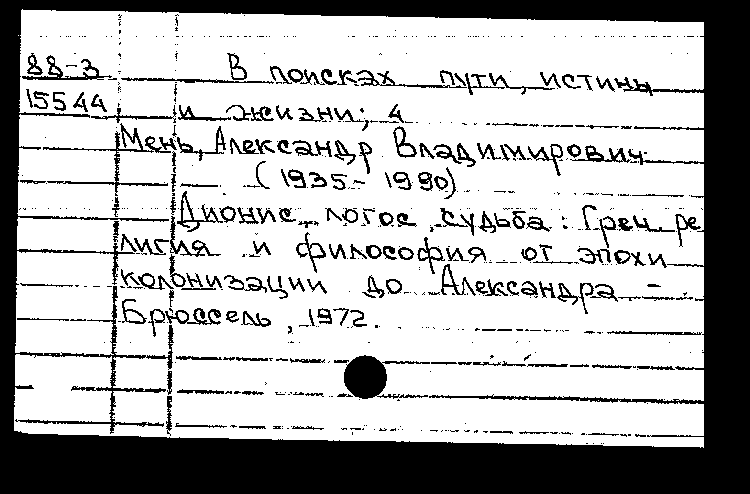 88-3 В поисках пути, истины
15544 и жизни; 4
Мень, Александр Владимирович
(1935-1990)
Дионис, логос, судьба: Греч. ре
лигия и философия от эпохи
колонизации до Александра -
Брюссель, 1972.